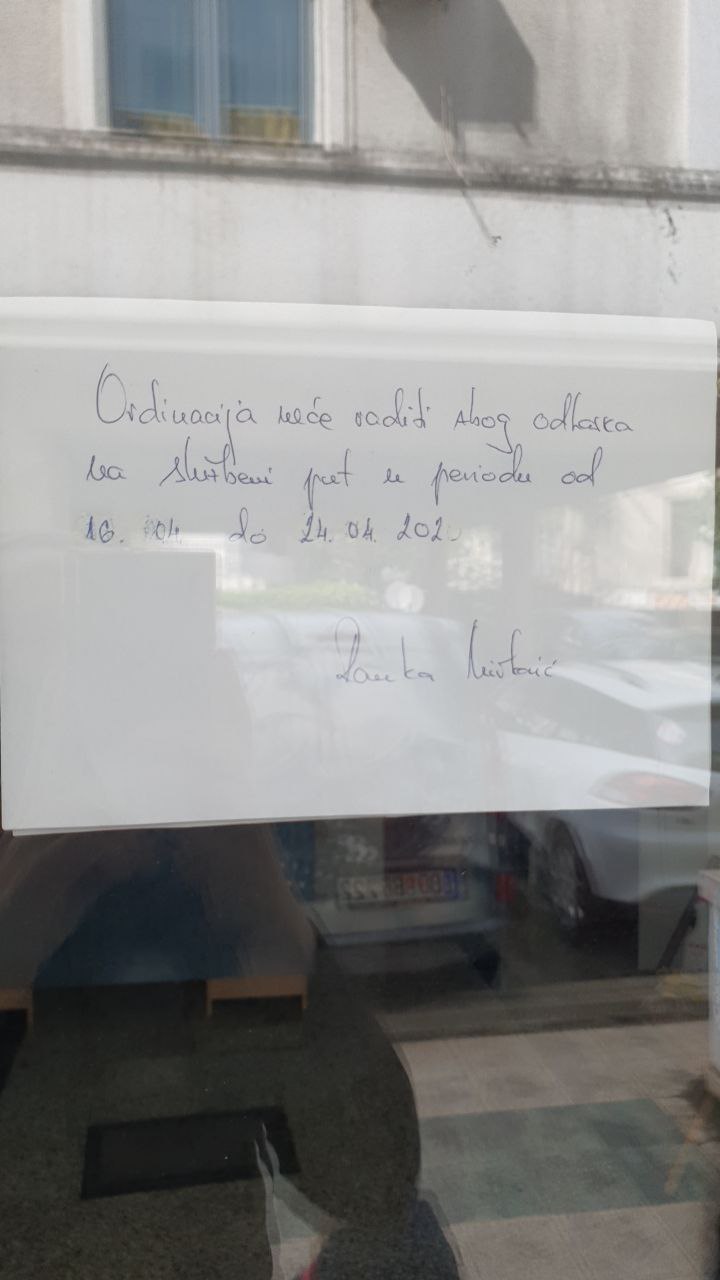 Ordinacija neće raditi zbog odlaska
na službeni put u periodu od
16. 04. do 24. 04. 202
Ranka